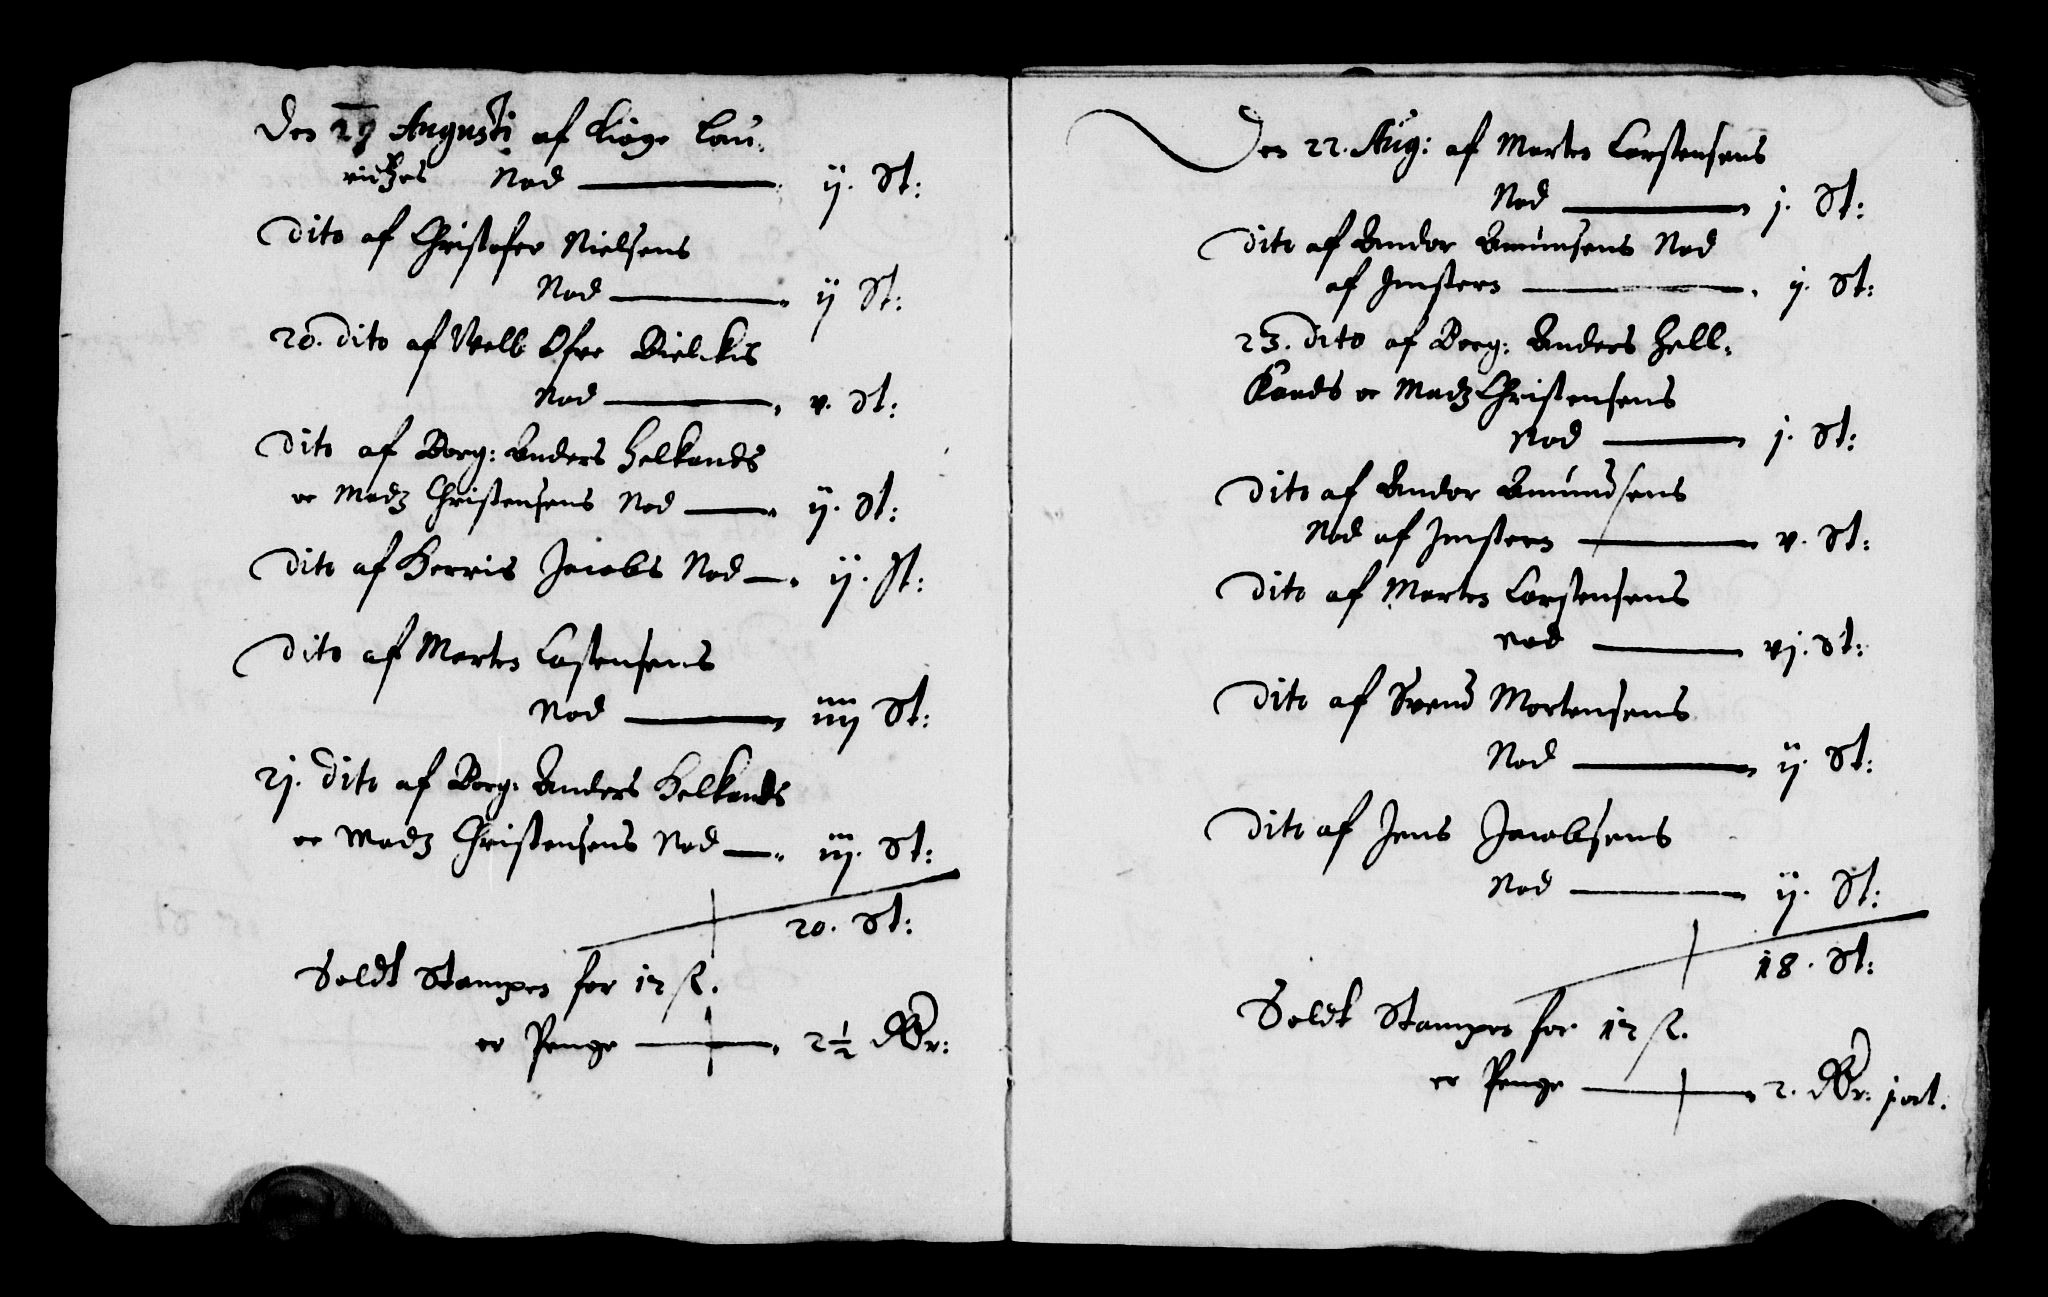 Den 29 Augusti af Kiøge Lau-
ridtzes Nod ij. St:
Dito af Christofer Nielsens
Nod ij St:
20. Dito af Velb Ofve Bielckis
Nod v. St:
Dito af Borg: Anders Helkands
oc Madz Christensens Nod ij. St:
Dito af Herris Jacobs Nod ij. St:
Dito af Morten Lastensens
Nod iiij St:
2j. Dito af Borg: Anders Helkands
oc Madz Christensens Nod iij. St:
20. St:
Soldt Stampen for 12 ß.
er Penge 2½ dlr:
Den 22. Aug: af Morten Carstensens
Nod j. St:
Dito af Andor Amunsens Nod
af Jmstern j. St:
23. Dito af Borg: Anders Hell-
Kands oc Madz Christensens
Nod j. St:
Dito af Andor Amundsens
Nod af Jmstern v. St:
Dito af Morten Carstensens
Nod vj. St:
Dito af Svend Mortensens
Nod ij. St:
Dito af Jens Jacobsens
Nod ij. St:
18. St:
Soldt Stampen for 12 ß.
er Penge 2. dlr: j ort.